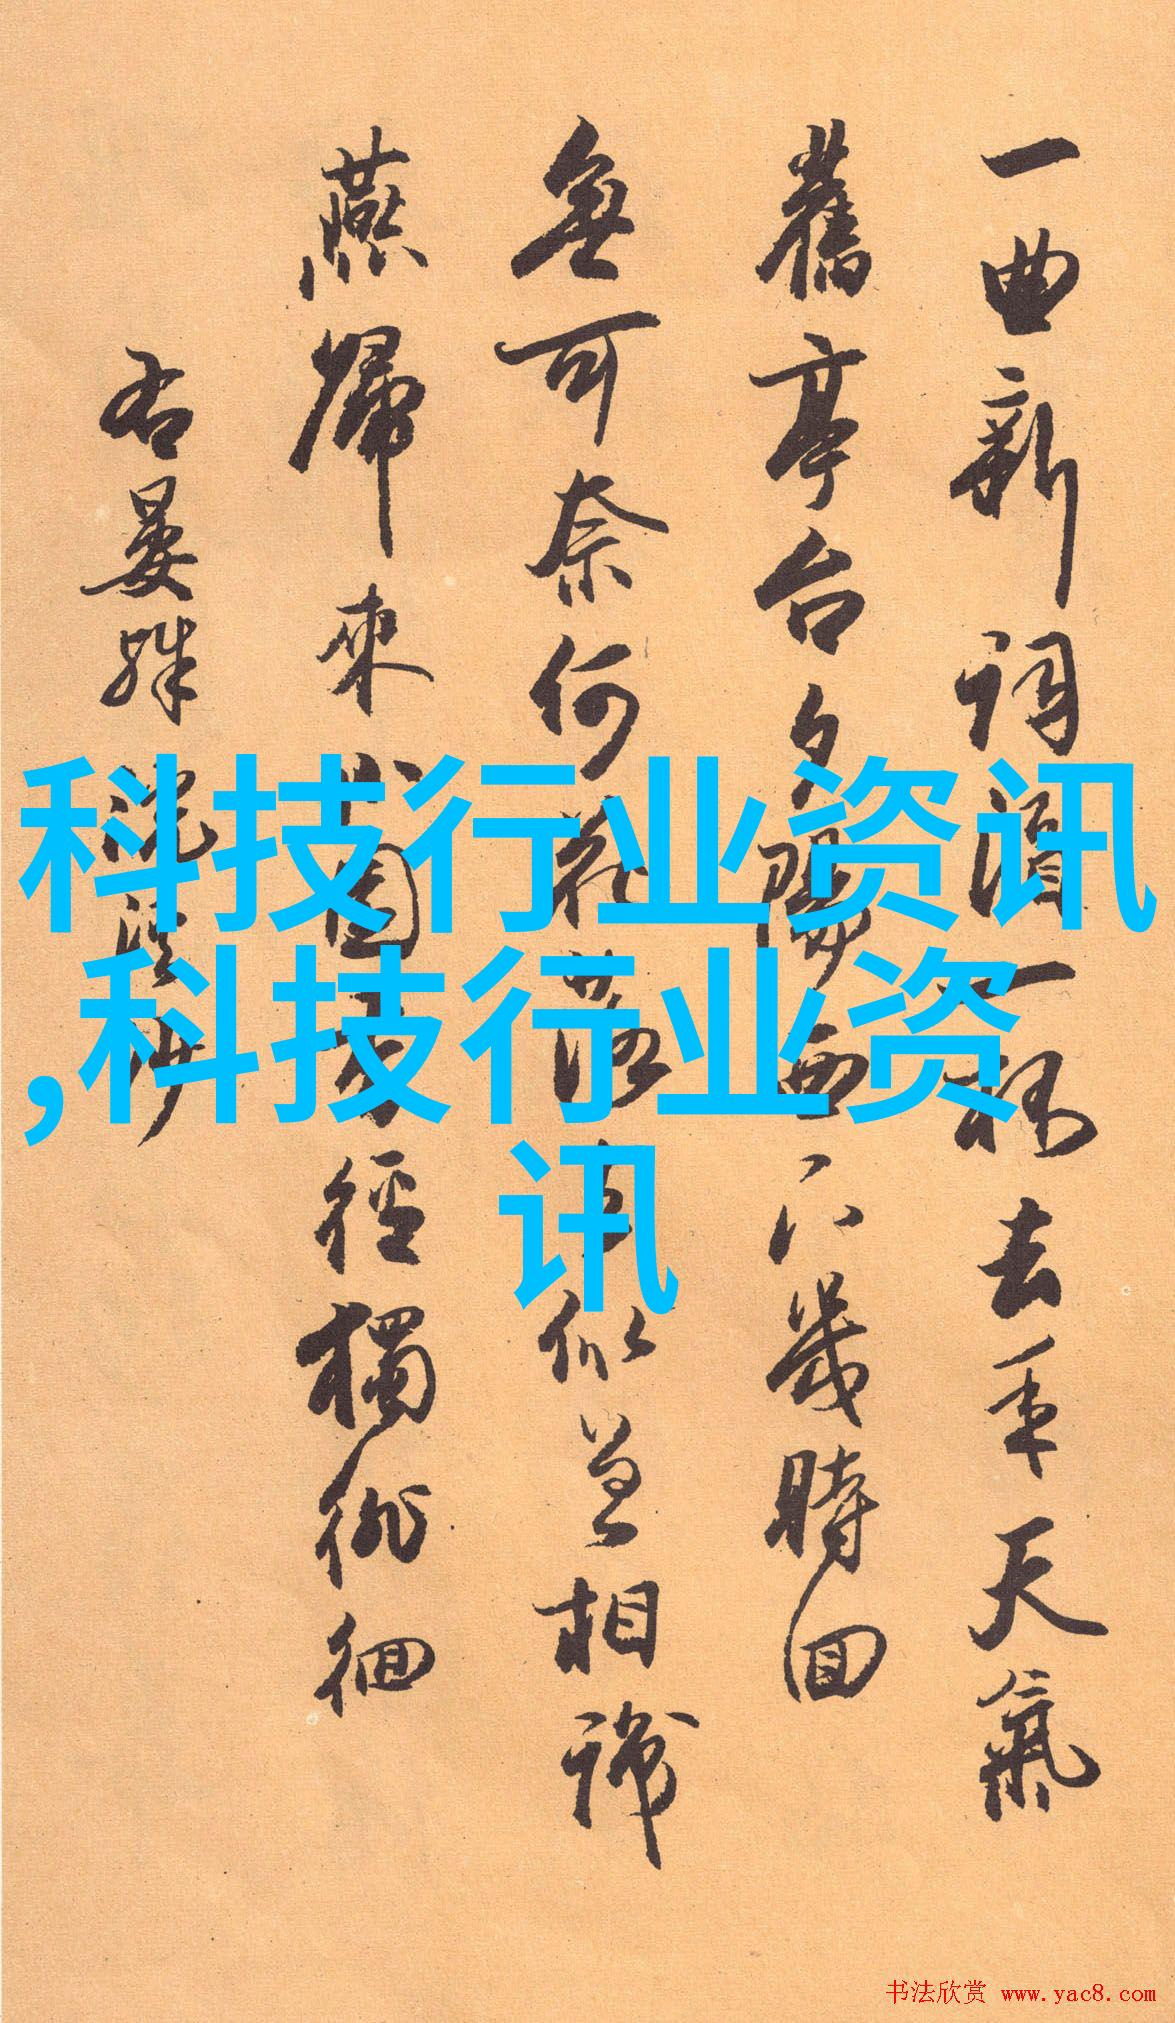 一曲新詞酒一杯去年天氣
舊亭台夕陽西下幾時回
無可奈何花落去似曾相識
燕歸來小園香徑獨徘徊
右晏殊浣溪沙
科技行业资讯
,科技行业资
讯
书法欣赏 www.yac8.com